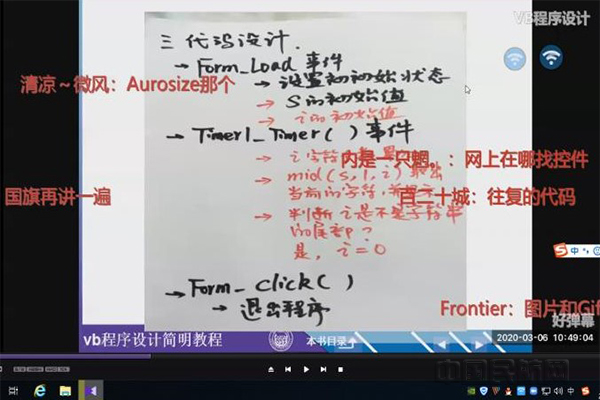 VB程序设计
三 代码设计.
→ Form_Load 事件
清凉～微风：Aurosize那个
→ 设置初初始状态
→ S的初始值
→ i的初始值
→ Timer1_Timer( ) 事件
→ i字符
内是一只蝈。：网上在哪找控件
→ mid(s,1,i)
国旗再讲一遍
当前的字符，
百二十城：往复的代码
→ 判断i是不是字符串
的尾部？
是，i=0
→ Form_click( )
→ 退出程序
Frontier：图片和Gif
好弹幕
vb程序设计简明教程
本书目录
2020-03-06 10:49:04
中
10:49